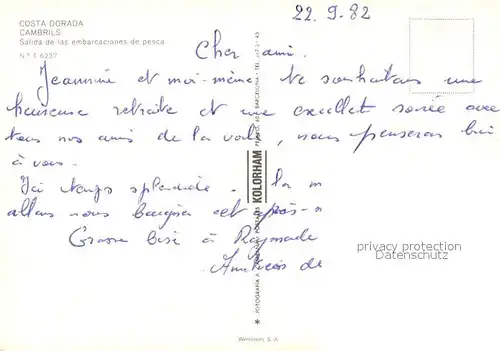 COSTA DORADA
CAMBRILS
Salida de las embarcaciones de pesca
N.º 1 6237
22.9.82
Cher ami.
Jeannine et moi-même te souhaitons une
heureuse retraite et une excellet soirée avec
tous nos amis de la voile, nous penserons bien
à vous.
Ici temps splendide.
allons nous baigner cet après-
Grosse bise à Raymonde
Amitiés de
KOLORHAM
privacy protection
Datenschutz